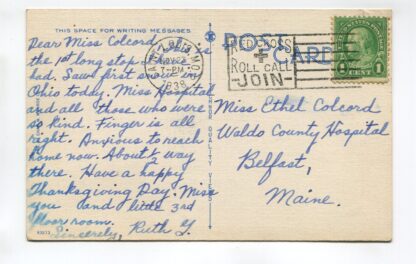 THIS SPACE FOR WRITING MESSAGES
POST CARD
Dear Miss Colcord, is
the 1st long stop
had. Saw first snow in
Ohio today. Miss Hospital
and all those who were
so kind. Finger is all
right. Anxious to reach
home now. About ½ way
there. Have a happy
Thanksgiving Day. Miss
you and little 3rd
floor room.
Sincerely, Ruth Y.
MO.
7-PM
RED CROSS
ROLL CALL
JOIN
1 CENT 1
Miss Ethel Colcord
Waldo County Hospital
Belfast,
Maine.